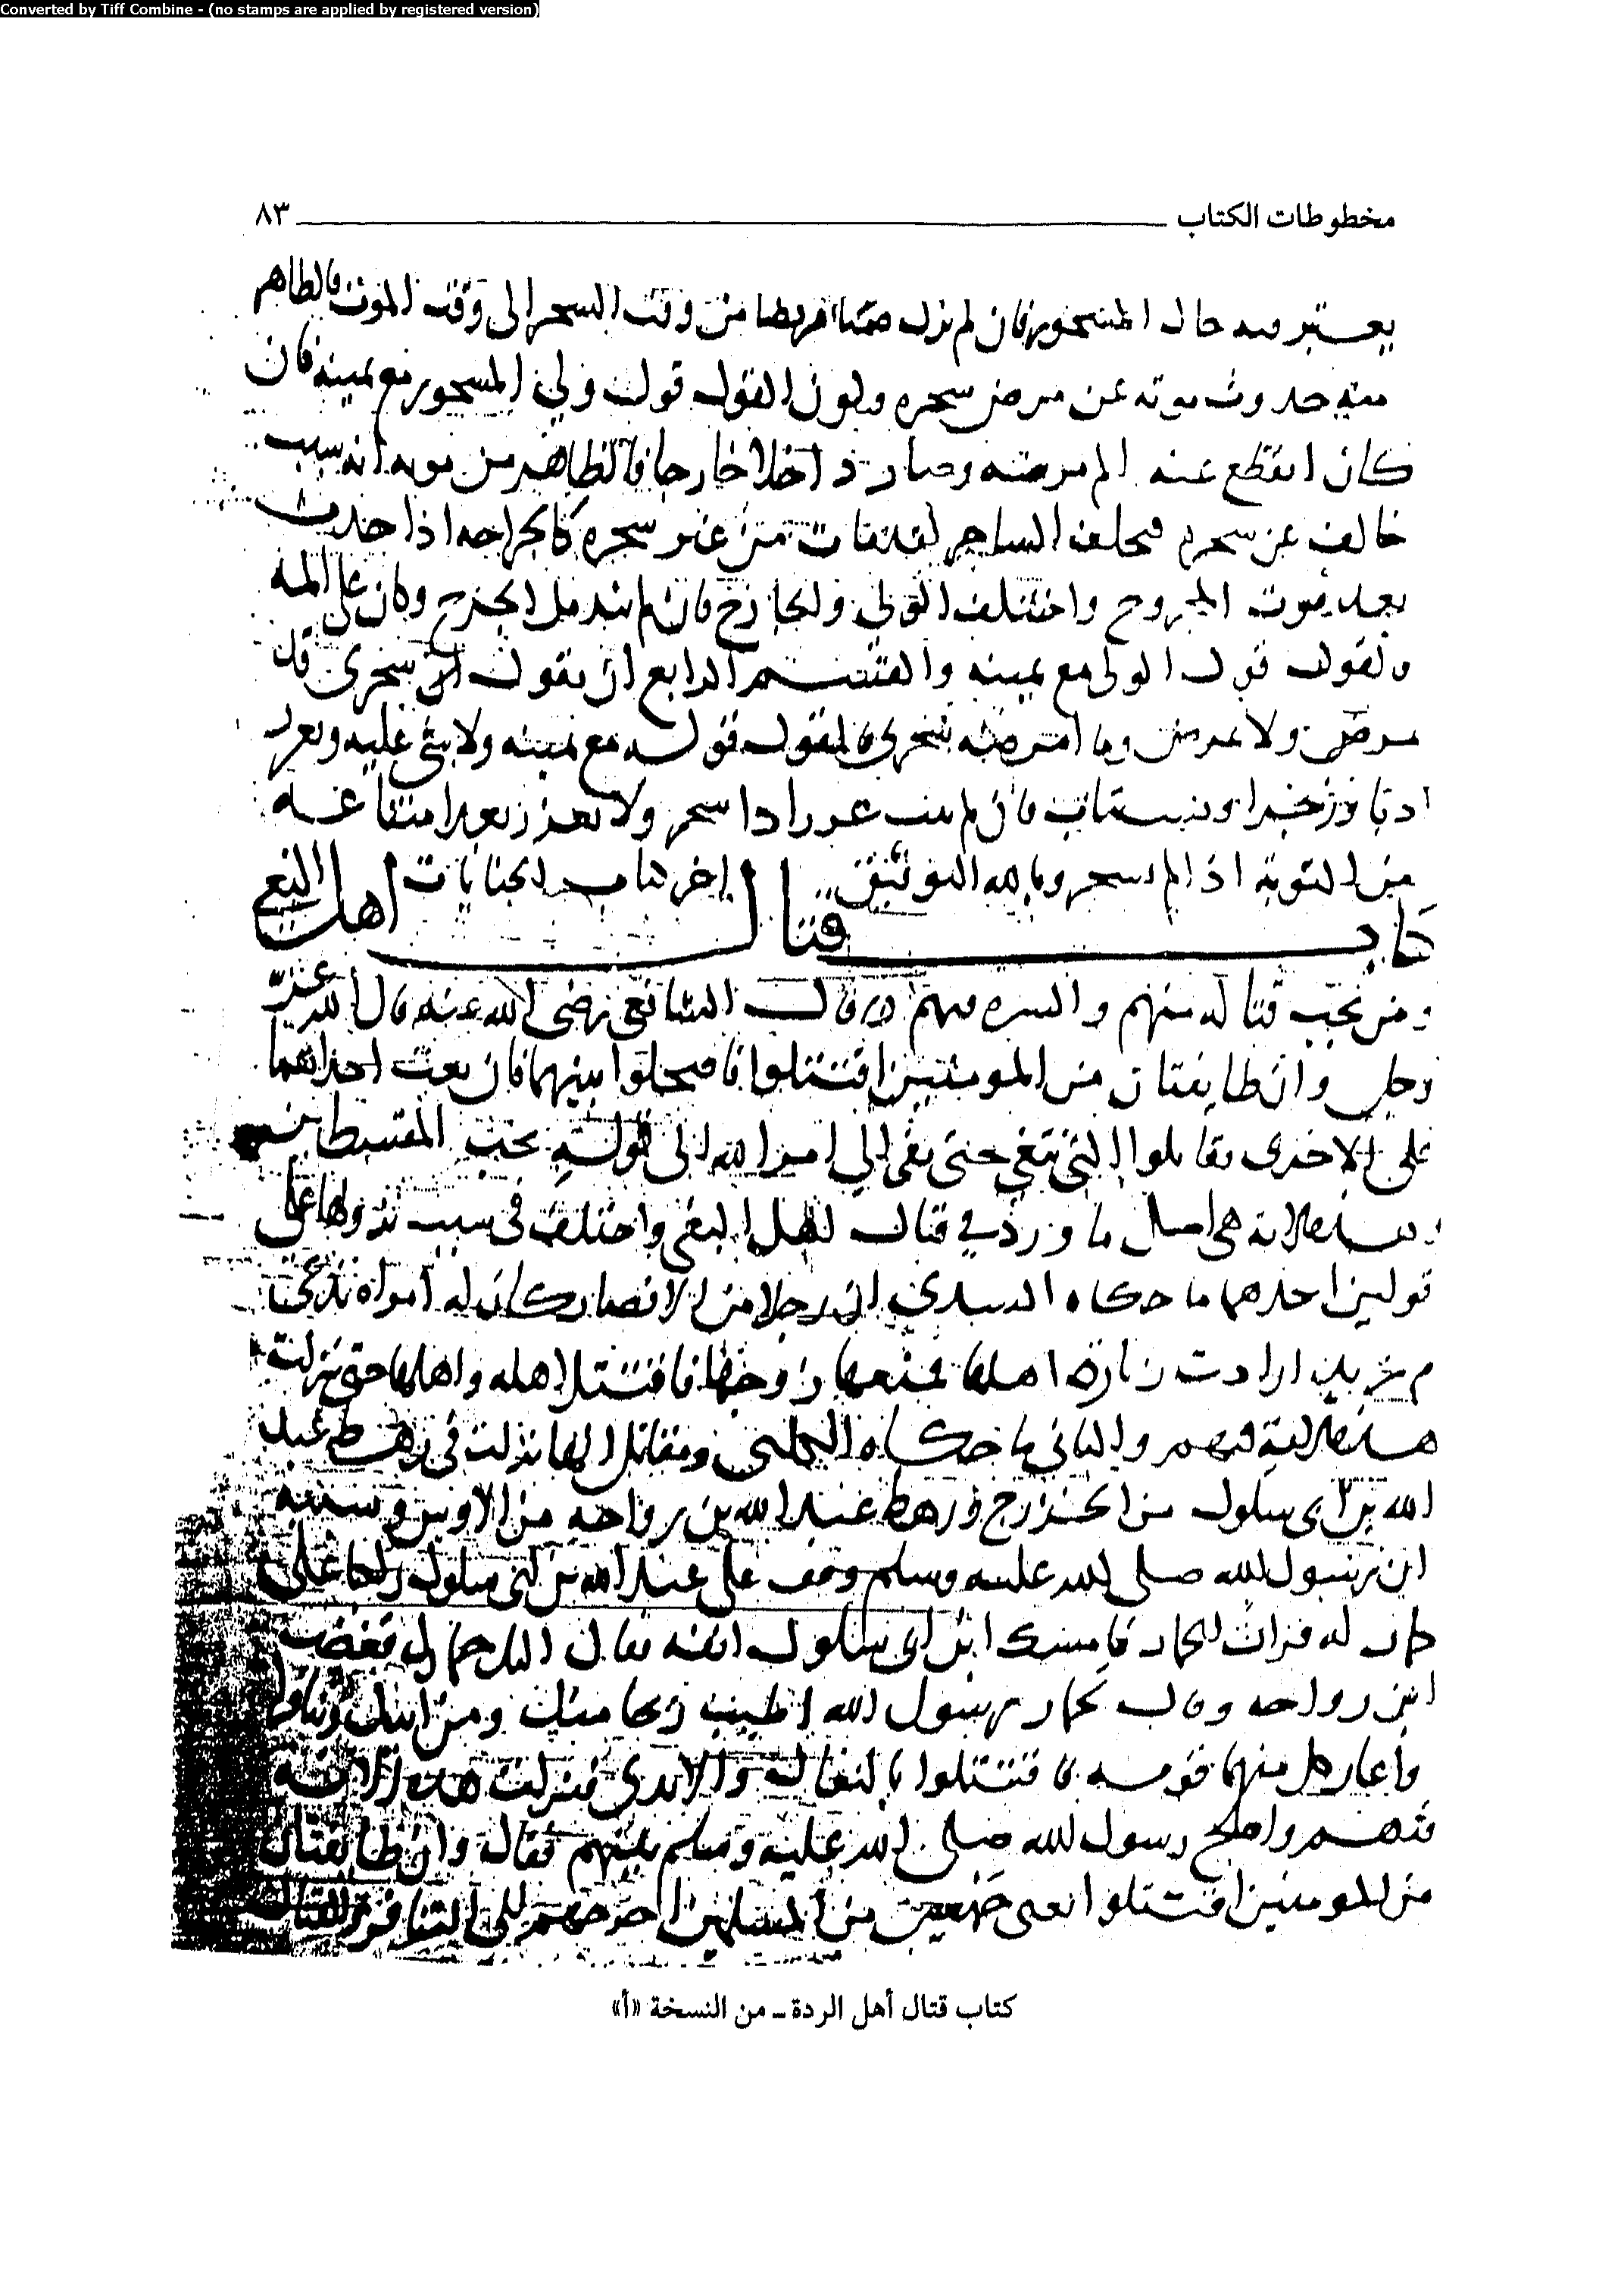 Converted by Tiff Combine - (no stamps are applied by registered version)
مخطوطات الكتاب ٨٣
يعتبر فيه حال المسحور فان لم يزل مريضا من وقت السحر الى وقت الموت فالظاهر
منه حدوث موته عن مرض سحره ويكون القول قول ولي المسحور مع يمينه فان
كان انقطع عنه المرض وصار داخلا خارجا فالظاهر من موته انه بسبب
خالف عن سحره فيحلف الساحر لقد مات من غير سحره كالجراحه اذا حدث
بعد موت المجروح واختلف الولي والجارح فان لم يندمل الجرح وكان على المه
فالقول قول الولي مع يمينه والقسم الرابع ان يقول ان سحري قد
يمرض ولا يمرض وما امرضه سحري فالقول قوله مع يمينه ولا شي عليه ويعزر
ادبا وزجرا ويستتاب فان لم يتب عزر اذا سحر ولا يعزر بعد امتناعه
من التوبة اذا لم يسحر وبالله التوفيق اخر كتاب الجنايات
كتاب قتال اهل البغي
ومن يجب قتاله منهم والسيره فيهم قال الشافعي رضي الله عنه قال الله عز
وجل وان طايفتان من المومنين اقتتلوا فاصلحوا بينهما فان بغت احداهما
على الاخرى فقاتلوا التي تبغي حتى تفي الى امر الله الى قوله يحب المقسطين
وهذه الاية هي اصل ما ورد في قتال اهل البغي واختلف في سبب نزولها على
قولين احدهما ما حكاه السدي ان رجلا من الانصار كان له امراه تدعى
ام زيد ارادت زيارة اهلها فمنعها زوجها فاقتتل اهله واهلها حتى نزلت
هذه الاية فيهم والثاني ما حكاه الكلبي ومقاتل انها نزلت في رهط عبد
الله بن ابي سلول من الخزرج ورهط عبد الله بن رواحه من الاوس وسببه
ان رسول الله صلى الله عليه وسلم وقف على عبد الله بن ابي سلول راكبا على
حمار له فراث الحمار فامسك ابن ابي سلول انفه فقال اليك حمارك فغضب
ابن رواحه وقال لحمار رسول الله اطيب ريحا منك ومن ابيك وتنافرا
واعان كل منهما قومه فاقتتلوا بالنعال والايدي فنزلت هذه الاية
فيهم واصلح رسول الله صلى الله عليه وسلم بينهم فقال وان طايفتان
من المومنين اقتتلوا يعني جمعين من المسلمين اخرجهم الى القتال
كتاب قتال أهل الردة ـ من النسخة «أ»